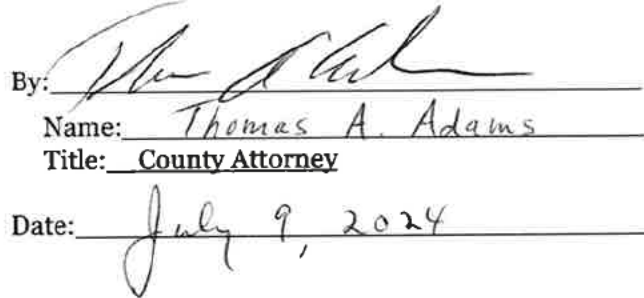 By:
Name: Thomas A. Adams
Title: County Attorney
Date: July 9, 2024